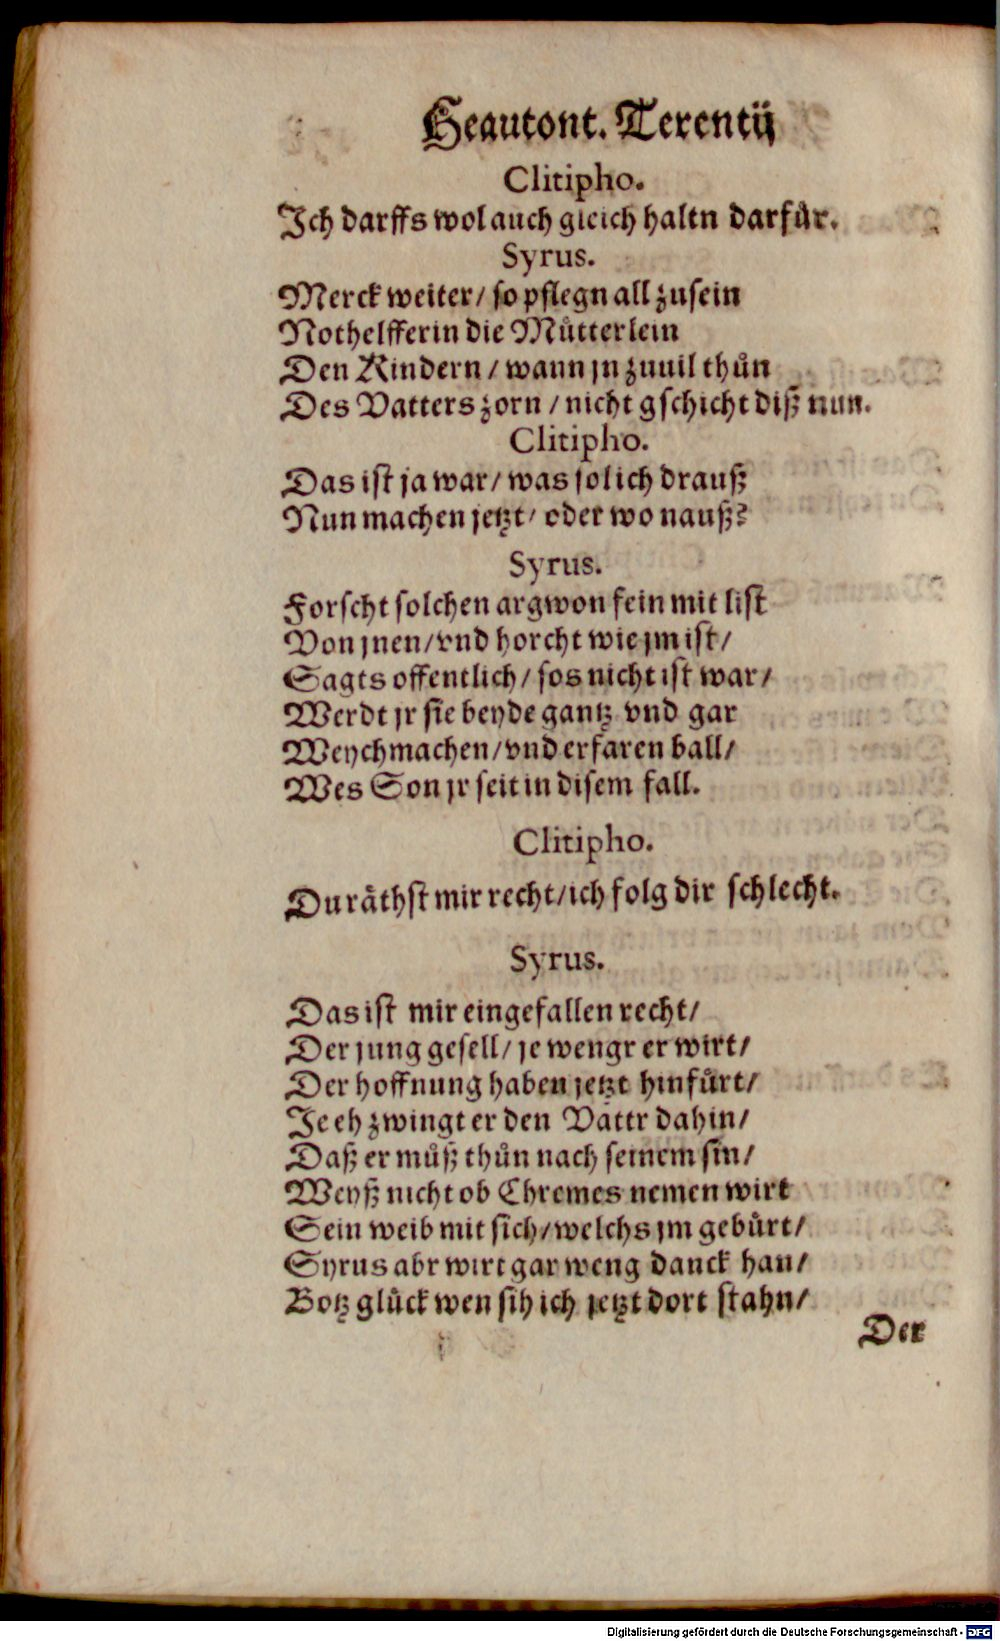 Heautont. Terentij
Clitipho.
Ich darffs wol auch gleich haltn darfür.
Syrus.
Merck weiter / so pflegn all zusein
Nothelfferin die Mütterlein
Den Kindern / wann jn zuuil thůn
Des Vatters zorn / nicht gschicht diß nun.
Clitipho.
Das ist ja war / was sol ich drauß
Nun machen jetzt / oder wo nauß?
Syrus.
Forscht solchen argwon fein mit list
Von jnen / vnd horcht wie jm ist /
Sagts offentlich / sos nicht ist war /
Werdt jr sie beyde gantz vnd gar
Weychmachen / vnd erfaren ball /
Wes Son jr seit in disem fall.
Clitipho.
Du räthst mir recht / ich folg dir schlecht.
Syrus.
Das ist mir eingefallen recht /
Der jung gesell / je wengr er wirt /
Der hoffnung haben jetzt hinfürt /
Je eh zwingt er den Vattr dahin /
Daß er můß thůn nach seinem sin /
Weyß nicht ob Chremes nemen wirt
Sein weib mit sich / welchs jm gebürt /
Syrus abr wirt gar weng danck han /
Botz glück wen sih ich jetzt dort stahn /
Der
Digitalisierung gefördert durch die Deutsche Forschungsgemeinschaft - DFG